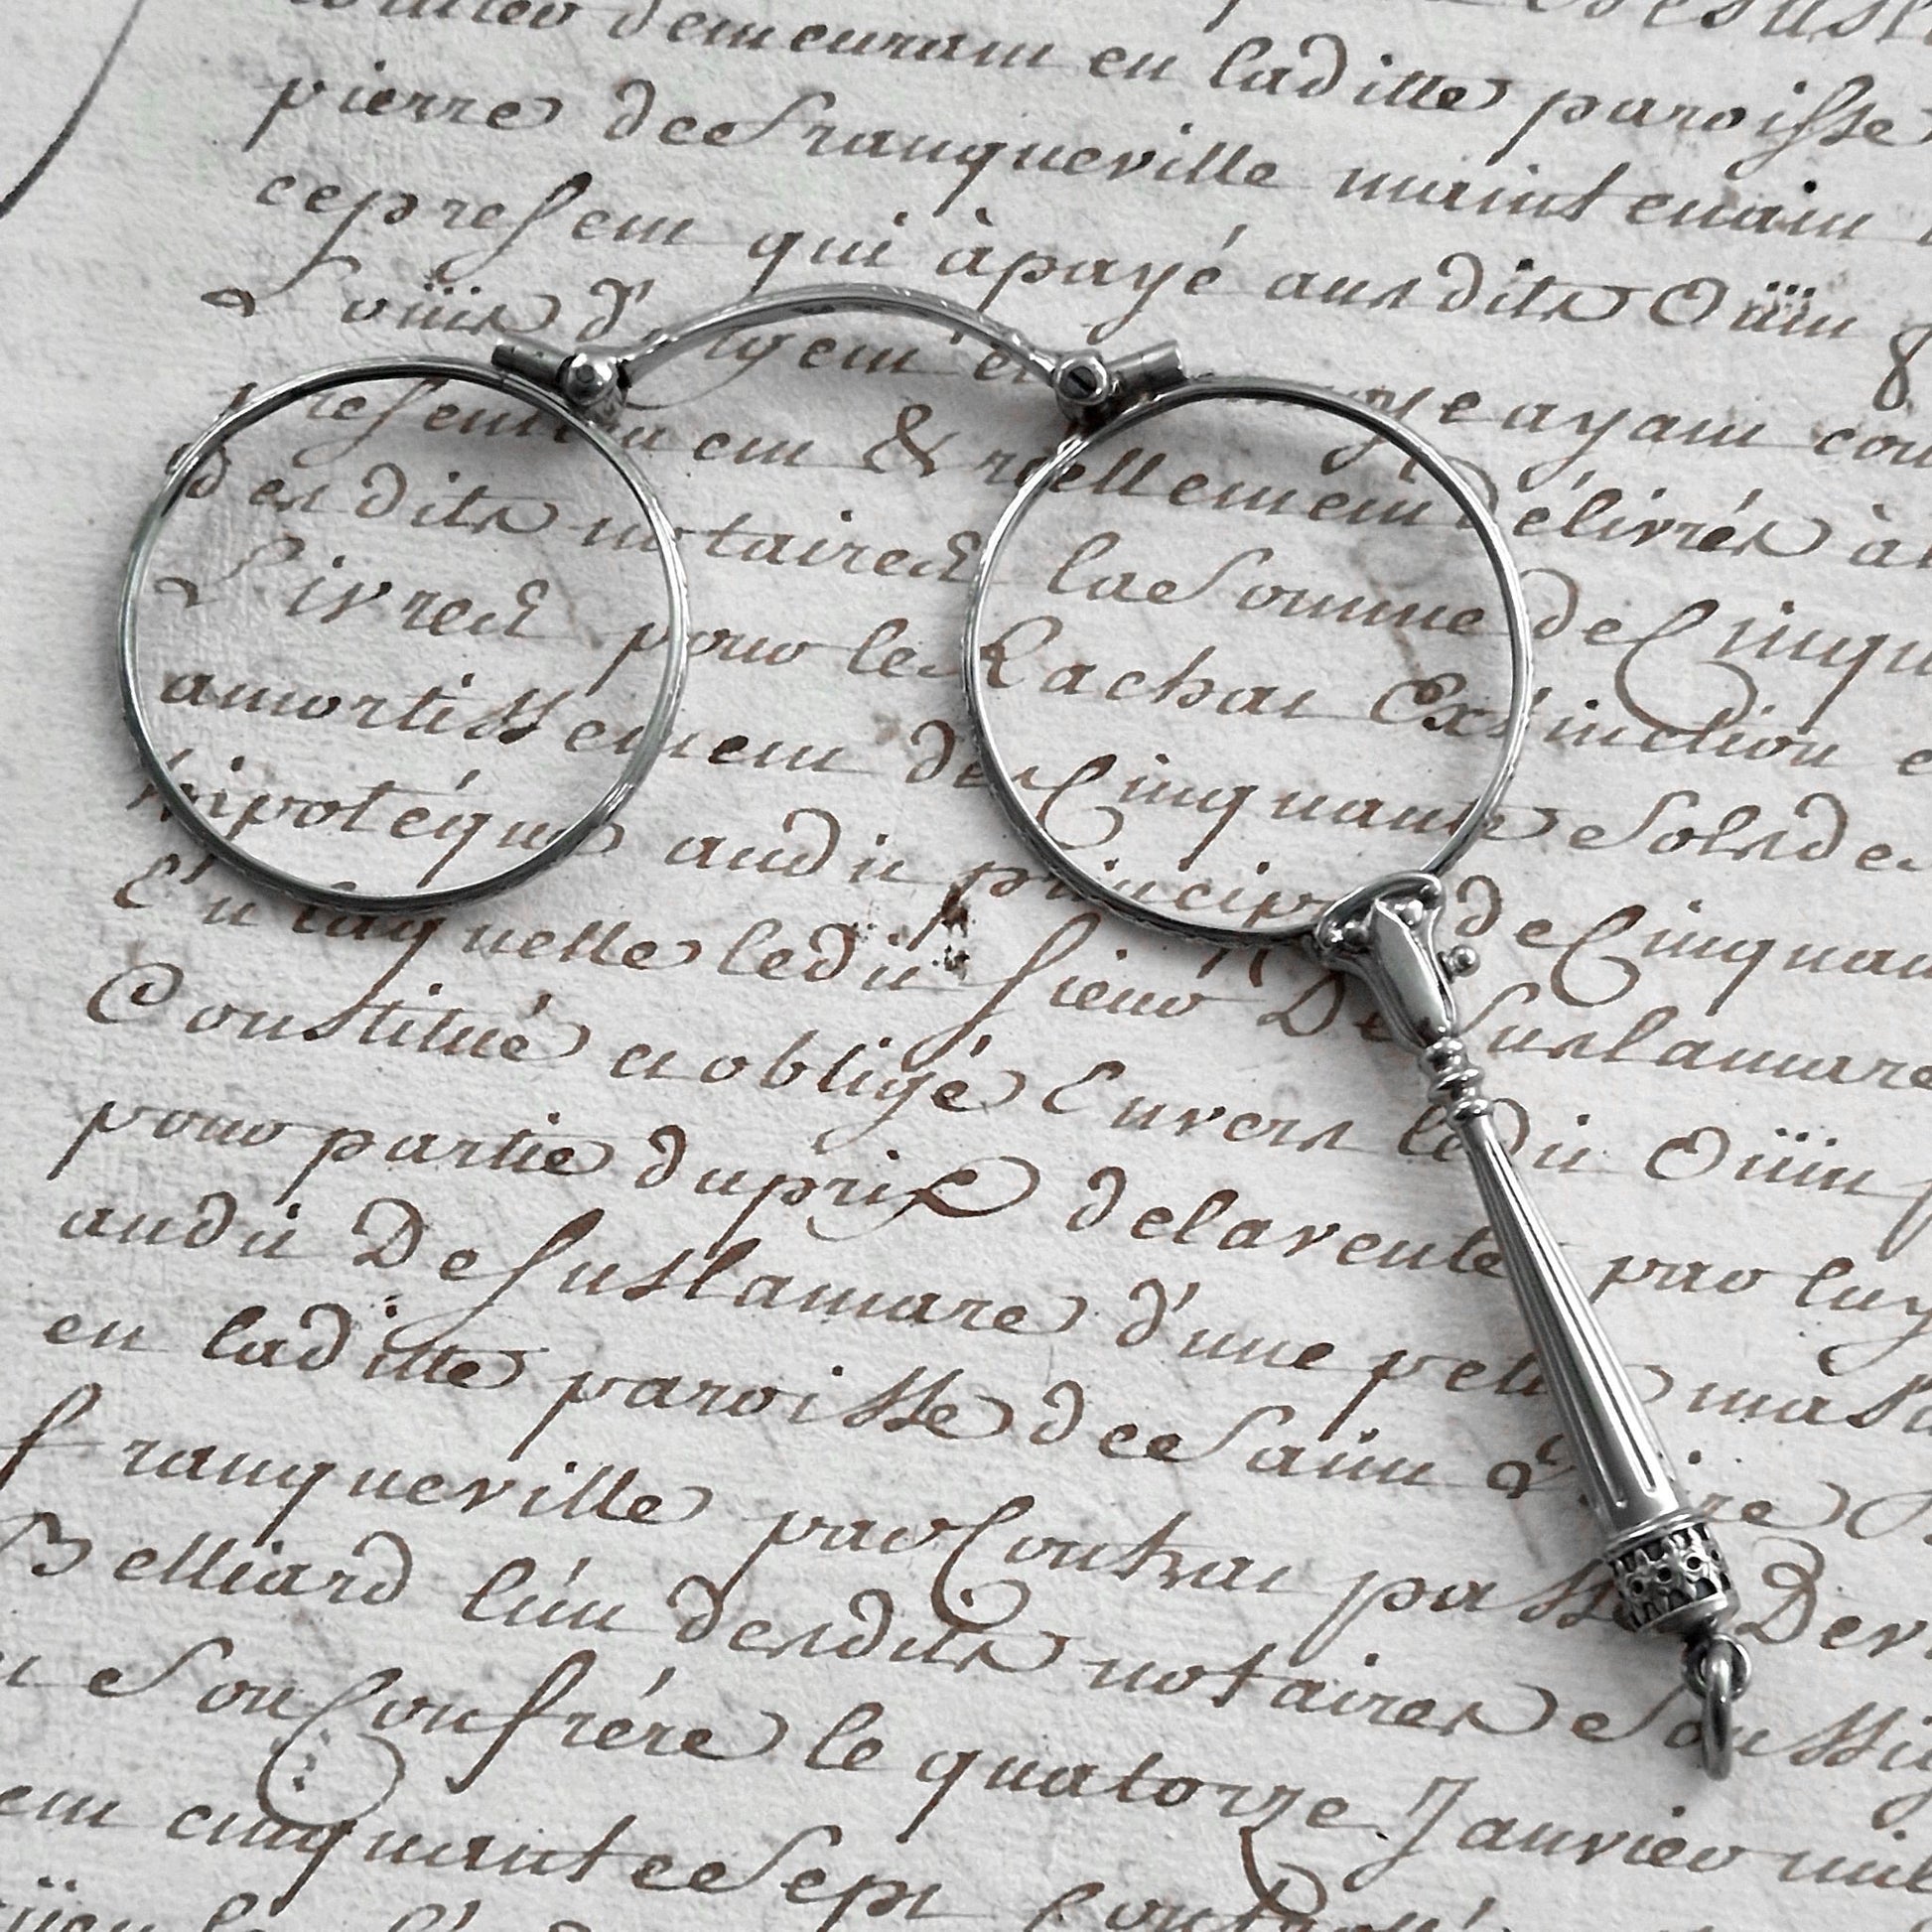 demeurant en laditte paroisse
pierre de franqueville maintenant
ce present qui à payé ausdits Oüin
Loüis d'argent et monnoye ayant cou
presentement & réellement délivrés à
desdits notaires la Somme de Cinqu
Livres pour le Rachat Extinction e
amortissement de Cinquante Sols de
hipotéque audit principal de Cinquan
En laquelle ledit sieur Desuslamare
Constitué et obligé Envers ledit Oüin
pour partie du prix de la vente par luy
audit Desuslamare d'une petitte
en laditte paroisse de Saint Pierre
franqueville par Contrat passé Dev
Belliard l'un desdits notaires Soussig
Son Confrére le quatorze Janvier mil
cent cinquante Sept